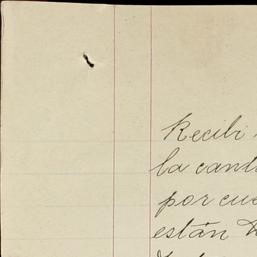 Recibi
la cant
por cu
están